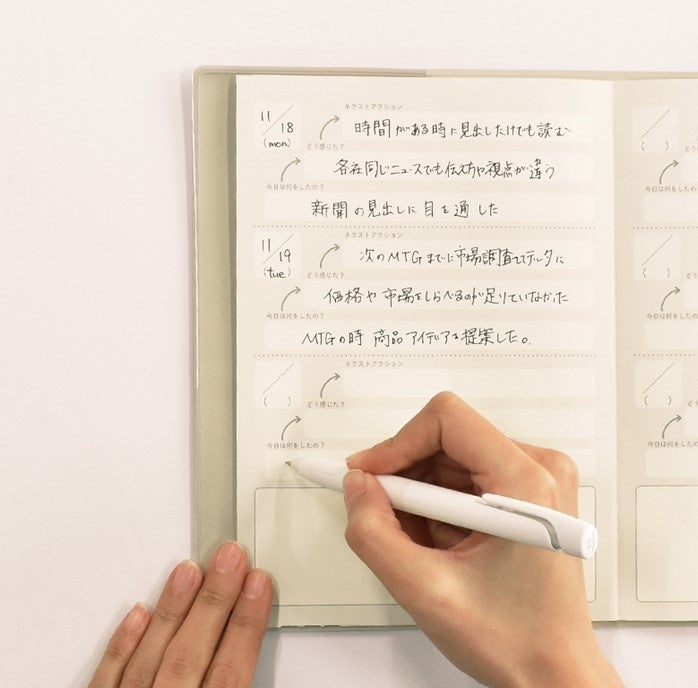 ネクストアクション
11/18
(mon)
時間がある時に見出しだけでも読む
どう感じた?
各社同じニュースでも伝え方や視点が違う
今日は何をしたの?
新聞の見出しに目を通した
ネクストアクション
11/19
(tue)
次のMTGまでに市場調査してデータに
どう感じた?
価格や市場をしらべるのが足りていなかった
今日は何をしたの?
MTGの時 商品アイデアを提案した。
ネクストアクション
( )
どう感じた?
今日は何をしたの?
( )
ど
今日は何を
( )
ど
今日は何を
( )
ど
今日は何を